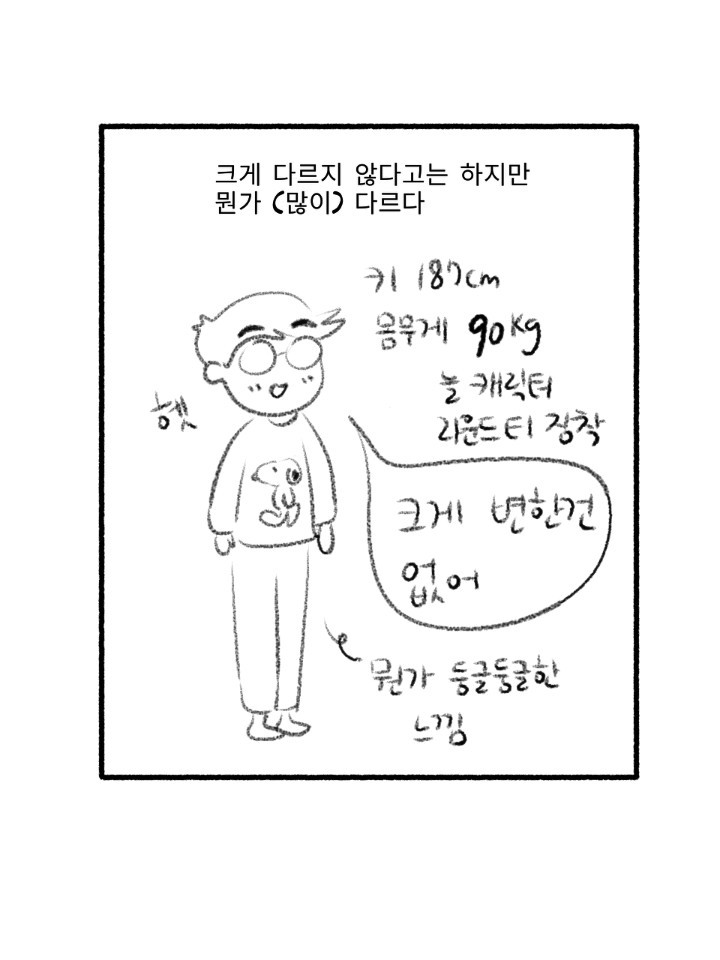 크게 다르지 않다고는 하지만
뭔가 (많이) 다르다
키 187cm
몸무게 90kg
늘 캐릭터
라운드티 장착
헷
크게 변한건
없어
뭔가 둥글둥글한
느낌